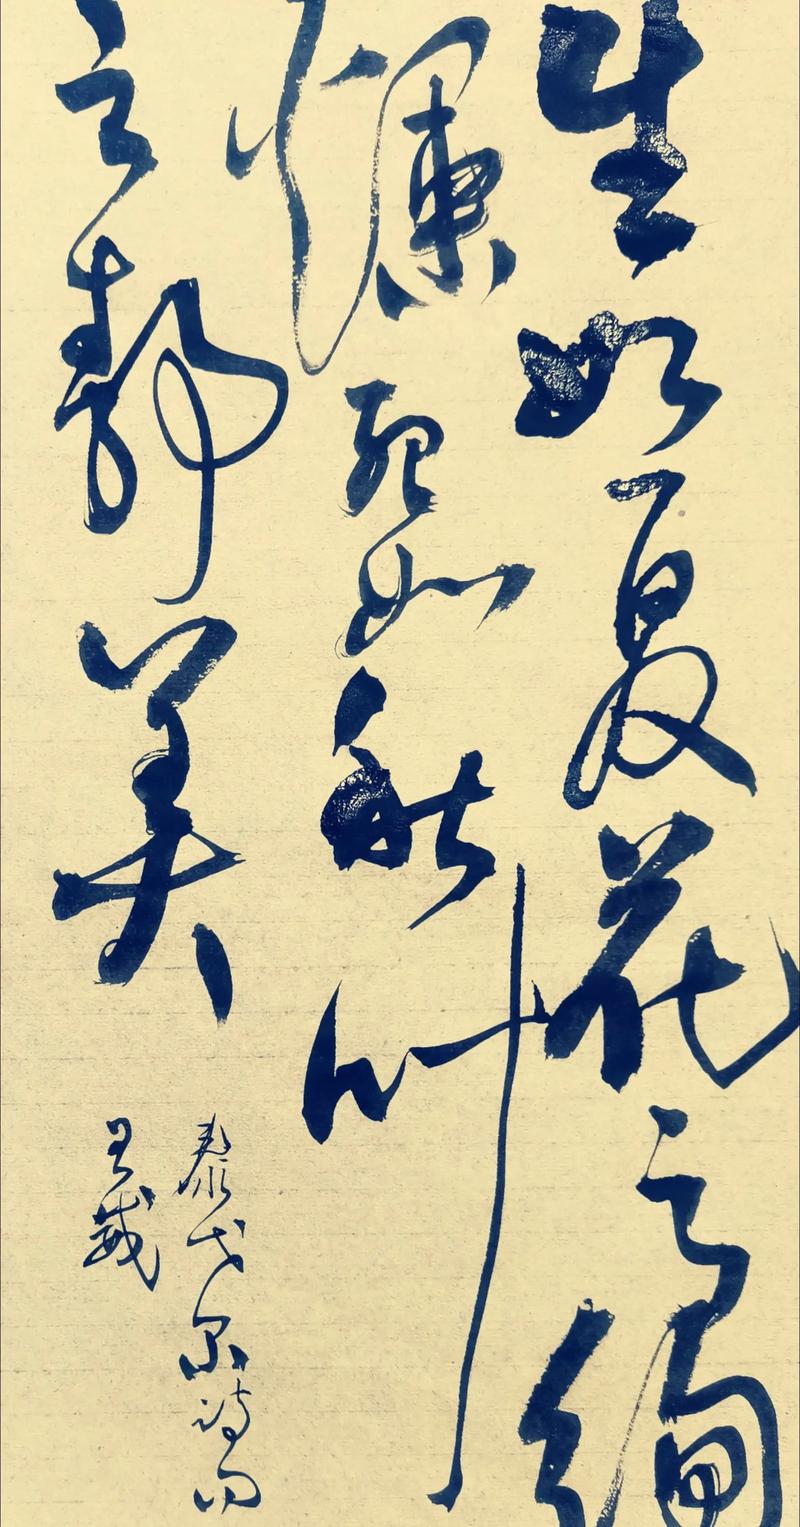 生如夏花之绚
爛死如秋叶
之静美
泰戈尔诗句